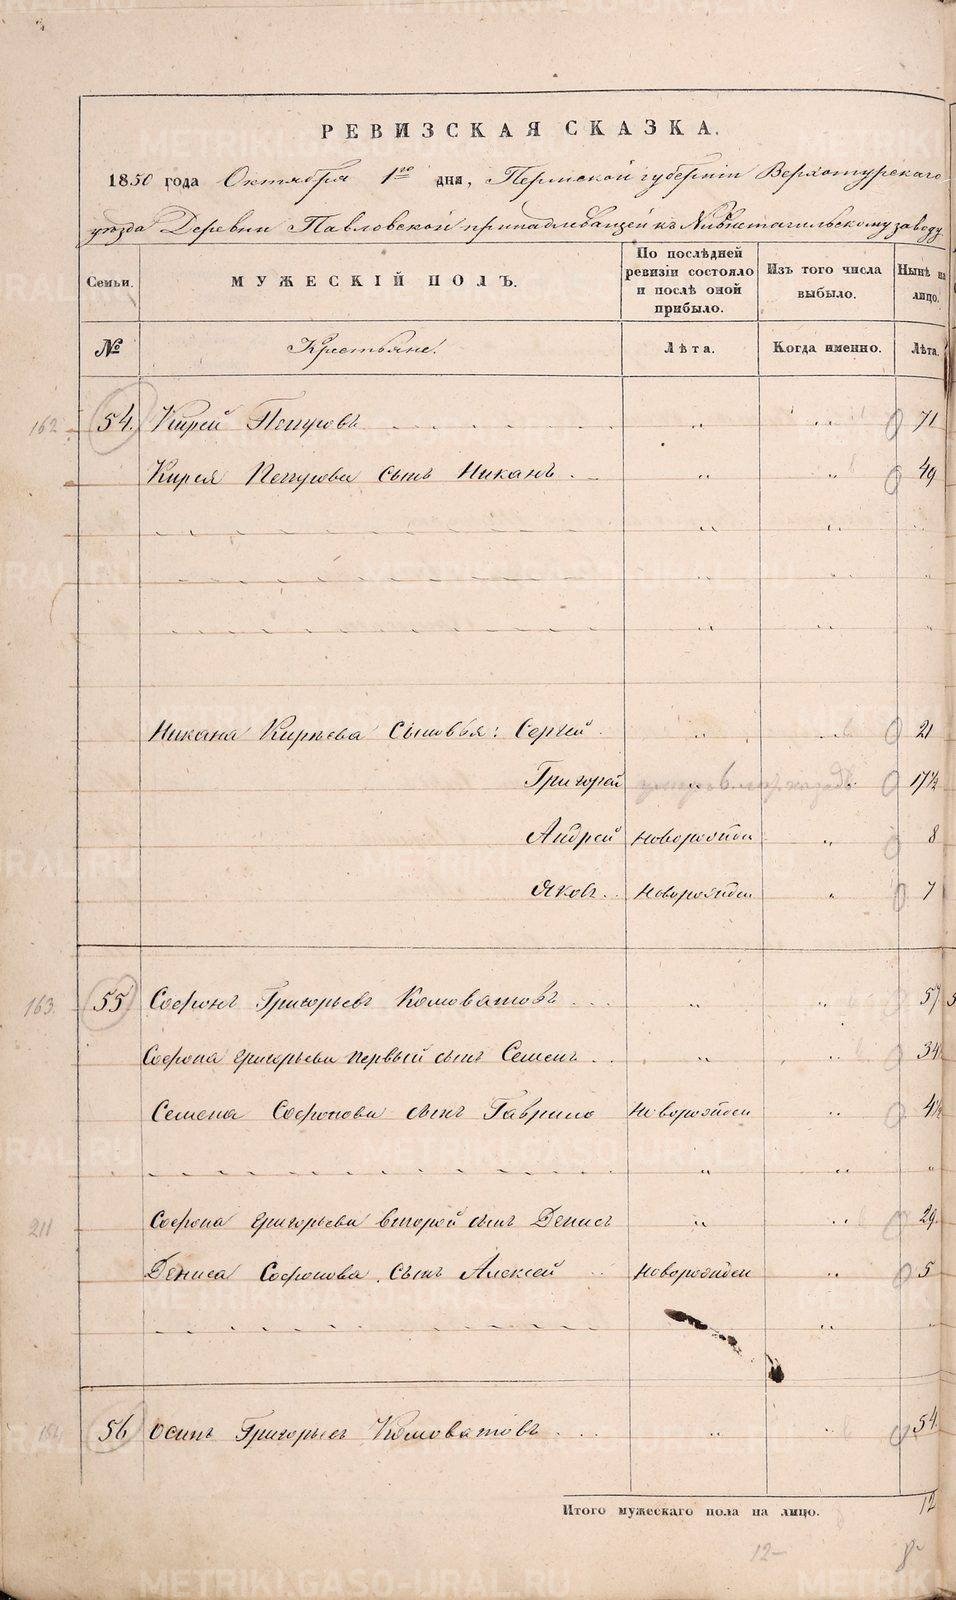 РЕВИЗСКАЯ СКАЗКА.
1850 года Октября 1го дня, Пермской губернiи Верхотурскаго
уѣзда Деревни Павловской принадлежащей к Нижнетагильскому заводу
Семьи. МУЖЕСКIЙ ПОЛЪ. По послѣдней ревизiи состояло и послѣ оной прибыло. Изъ того числа выбыло. Нынѣ на лицо.
№ Крестьяне. Лѣта. Когда именно. Лѣта.
162 54. Кирей Петровъ 71
Кирея Петрова сынъ Никанъ 49
Никана Кирѣева сыновья: Сергей 21
Григорей 17½
Андрей новорожден 8
Яковъ новорожден 7
163. 55 Софонъ Григорьевъ Коноваловъ 57
Софона Григорьева первый сынъ Семенъ 34½
Семена Софонова сынъ Гаврило новорожден 4½
211 Софона Григорьева второй сынъ Денисъ 29
Дениса Софонова сынъ Алексей новорожден 5
56 Осипъ Григорьевъ Коноваловъ 54.
Итого мужескаго пола на лицо. 12
12-
METRIKI.GASO-URAL.RU